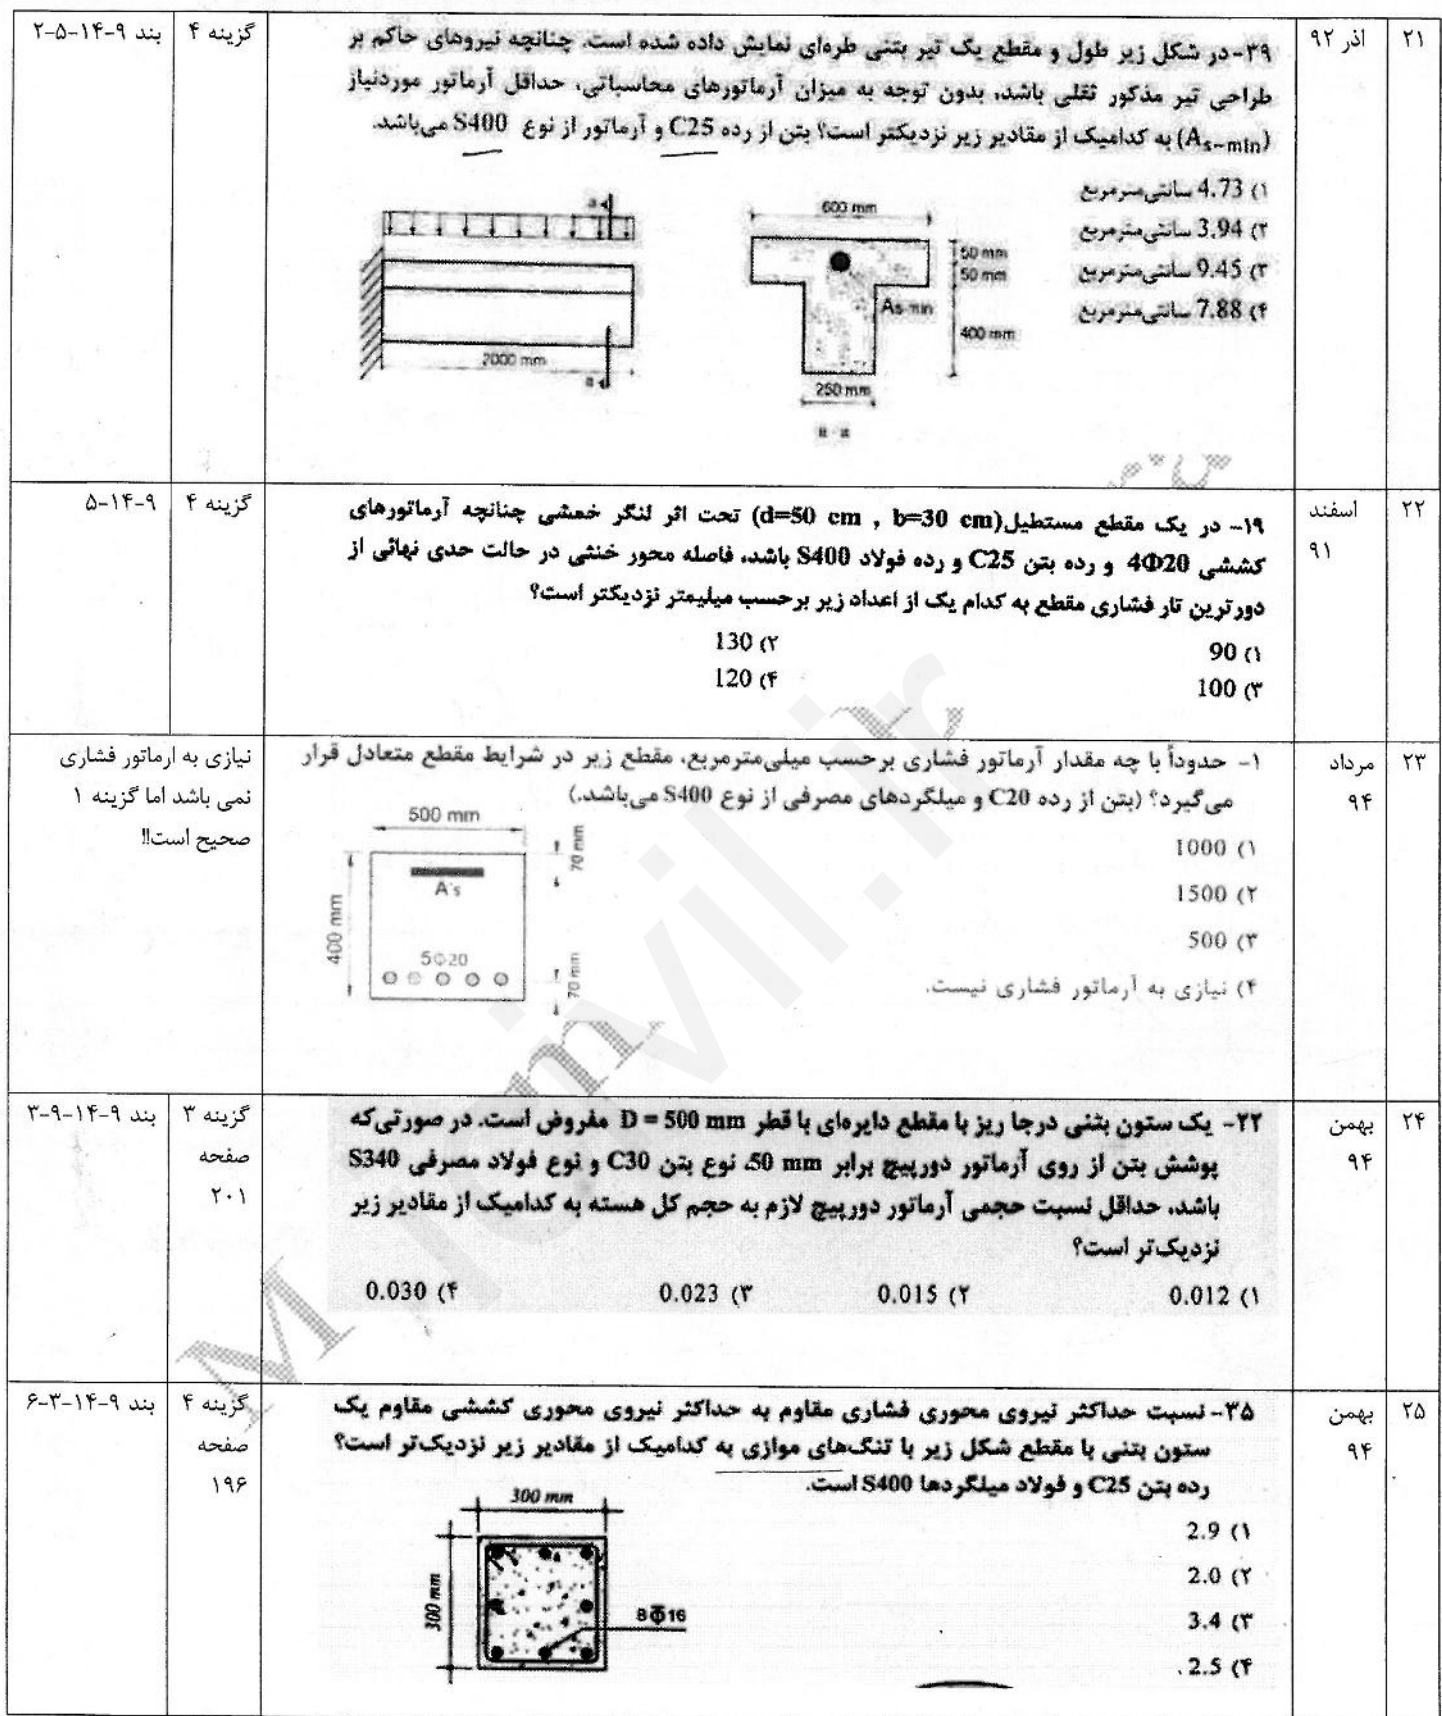 ۲۱
اذر ۹۲
۳۹-در شکل زیر طول و مقطع یک تیر بتنی طره‌ای نمایش داده شده است. چنانچه نیروهای حاکم بر
طراحی تیر مذکور ثقلی باشد، بدون توجه به میزان آرماتورهای محاسباتی، حداقل آرماتور موردنیاز
(As-min) به کدامیک از مقادیر زیر نزدیکتر است؟ بتن از رده C25 و آرماتور از نوع S400 می‌باشد.
۱) 4.73 سانتی‌مترمربع
۲) 3.94 سانتی‌مترمربع
۳) 9.45 سانتی‌مترمربع
۴) 7.88 سانتی‌مترمربع
600 mm
50 mm
50 mm
As-min
400 mm
250 mm
a - a
a
2000 mm
a
گزینه ۴
بند ۹-۱۴-۵-۲
۲۲
اسفند
۹۱
۱۹- در یک مقطع مستطیل(d=50 cm , b=30 cm) تحت اثر لنگر خمشی چنانچه آرماتورهای
کششی 4Φ20 و رده بتن C25 و رده فولاد S400 باشد، فاصله محور خنثی در حالت حدی نهائی از
دورترین تار فشاری مقطع به کدام یک از اعداد زیر برحسب میلیمتر نزدیکتر است؟
۱) 90
۲) 130
۳) 100
۴) 120
گزینه ۴
۹-۱۴-۵
۲۳
مرداد
۹۴
۱- حدوداً با چه مقدار آرماتور فشاری برحسب میلی‌مترمربع، مقطع زیر در شرایط مقطع متعادل قرار
می‌گیرد؟ (بتن از رده C20 و میلگردهای مصرفی از نوع S400 می‌باشد.)
۱) 1000
۲) 1500
۳) 500
۴) نیازی به آرماتور فشاری نیست.
500 mm
70 mm
A's
400 mm
5Φ20
70 mm
نیازی به ارماتور فشاری
نمی باشد اما گزینه ۱
صحیح است!!
۲۴
بهمن
۹۴
۲۲- یک ستون بتنی درجا ریز با مقطع دایره‌ای با قطر D = 500 mm مفروض است. در صورتی‌که
پوشش بتن از روی آرماتور دورپیچ برابر 50 mm، نوع بتن C30 و نوع فولاد مصرفی S340
باشد، حداقل نسبت حجمی آرماتور دورپیچ لازم به حجم کل هسته به کدامیک از مقادیر زیر
نزدیک‌تر است؟
۱) 0.012
۲) 0.015
۳) 0.023
۴) 0.030
گزینه ۳
صفحه
۲۰۱
بند ۹-۱۴-۹-۳
۲۵
بهمن
۹۴
۳۵- نسبت حداکثر نیروی محوری فشاری مقاوم به حداکثر نیروی محوری کششی مقاوم یک
ستون بتنی با مقطع شکل زیر با تنگ‌های موازی به کدامیک از مقادیر زیر نزدیک‌تر است؟
رده بتن C25 و فولاد میلگردها S400 است.
۱) 2.9
۲) 2.0
۳) 3.4
۴) 2.5
300 mm
300 mm
8Φ16
گزینه ۴
صفحه
۱۹۶
بند ۹-۱۴-۳-۶